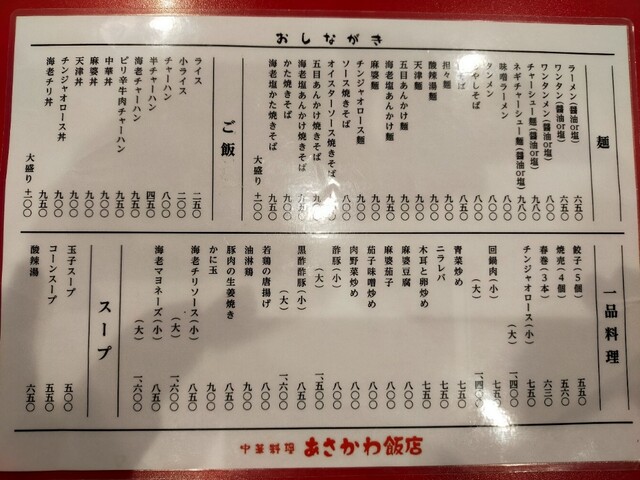 おしながき
麺
ラーメン(醤油or塩) 六五〇
ワンタン(醤油or塩)
ワンタンメン(醤油or塩)
チャーシュー麺(醤油or塩)
ネギチャーシュー麺(醤油or塩)
味噌ラーメン
タンメン
もやしそば
担々麺
酸辣湯麺
天津麺
五目あんかけ麺
海老塩あんかけ麺
麻婆麺
チンジャオロース麺
ソース焼きそば
オイスターソース焼きそば
五目あんかけ焼きそば
海老塩あんかけ焼きそば
かた焼きそば
海老塩かた焼きそば 九五〇
大盛り 十一〇〇
ご飯
ライス 二五〇
小ライス 二〇〇
チャーハン 八〇〇
半チャーハン 四五〇
海老チャーハン 九五〇
ピリ辛牛肉チャーハン 九五〇
中華丼 九〇〇
麻婆丼 九〇〇
天津丼 九〇〇
チンジャオロース丼 九〇〇
海老チリ丼 九五〇
大盛り 十一〇〇
一品料理
餃子(5個) 五五〇
焼売(4個) 五六〇
春巻(3本) 六三〇
チンジャオロース(小) 七五〇
(大) 一、四〇〇
回鍋肉(小) 七五〇
(大) 一、四〇〇
青菜炒め 七五〇
ニラレバ 七五〇
木耳と卵炒め 七五〇
麻婆豆腐 八〇〇
麻婆茄子 八〇〇
茄子味噌炒め 八〇〇
肉野菜炒め 八〇〇
酢豚(小) 八〇〇
(大) 一、五〇〇
黒酢酢豚(小) 八五〇
(大) 一、六〇〇
若鶏の唐揚げ 八〇〇
油淋鶏 九〇〇
豚肉の生姜焼き 八五〇
かに玉 九〇〇
海老チリソース(小) 八五〇
(大) 一、六〇〇
海老マヨネーズ(小) 八五〇
(大) 一、六〇〇
スープ
玉子スープ 五〇〇
コーンスープ 五五〇
酸辣湯 六五〇
中華料理 あさかわ飯店